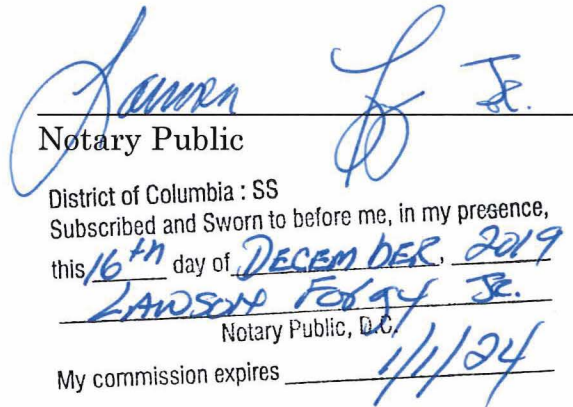 Lawson Jr.
Notary Public
District of Columbia : SS
Subscribed and Sworn to before me, in my presence,
this 16th day of DECEMBER, 2019
LAWSON Jr.
Notary Public, D.C.
My commission expires 1/1/24